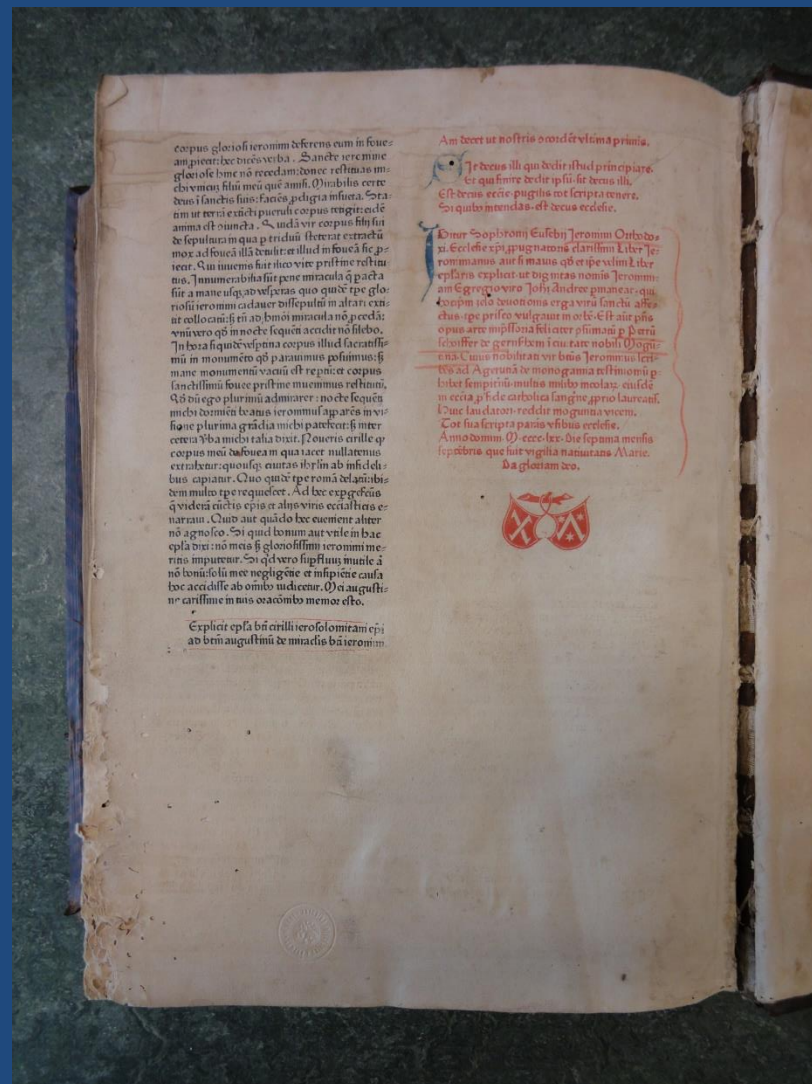 corpus gloriosi ieronimi deferens eum in foue⸗
am ꝓiecit: hec dicēs verba. Sancte ieronime
gloriose hinc nō recedam: donec restituas mi⸗
chi vnicū filiū meū quē amisi. Mirabilis certe
deus ī sanctis suis: faciēs ꝓdigia insueta. Sta⸗
tim ut terrā extīcti pueruli corpus tetigit: eidē
anima est ꝯiuncta. Quidā vir corpus filij sui
de sepultura in qua ꝑ triduū steterat extractū
mox ad foueā illā detulit: et illud in foueā sic ꝓ⸗
iecit. Qui iuuenis fuit ilico vite pristine restitu
tus. Innumerabilia sūt pene miracula q̄ ꝑacta
sūt a mane usqꝫ ad vesperas quo quidē tꝑe glo⸗
riosū ieronimi cadauer dissepultū in altari exti⸗
tit collocatū: sꝫ
vnū vero qð in nocte sequēti accidit nō silebo.
In hora siquidē vesꝑtina corpus illud sacratissi⸗
mū in monumēto qð parauimus posuimus: sꝫ
mane monumentū vacuū est reꝑtū: et corpus
sanctissimū fouee pristine inuenimus restitutū,
Qð dū ego plurimū admirarer: nocte sequēti
michi dormiēti beatus ieronimus apparēs in vi⸗
sione plurima grādia michi patefecit: sꝫ inter
cetera v̓ba michi talia dixit. Noueris cirille ꝙ
corpus meū de fouea in qua iacet nullatenus
extrahetur: quousqꝫ ciuitas ihrl̄m ab infideli⸗
bus capiatur. Quo quidē tꝑe romā delatū: ibi⸗
dem multo tꝑe requiescet. Ad hec expgefcūs
q̄ viderā cūctis ep̄is et alijs viris eccl̄iasticis e⸗
narraui. Quid aut quādo hec eueniēt aliter
nō agnosco. Si quid bonum aut vtile in hac
ep̄la dixi: nō meis sꝫ gloriosissimi ieronimi me⸗
ritis imputetur. Si qͥd vero suꝑfluū inutile ā
nō bonū: solū mee negligētie et insipiētie causa
hoc accidisse ab omībꝰ iudicetur. Mei augusti⸗
ne carissime in tuis oracōnibꝰ memor esto.
Explicit ep̄la bti cirilli ierosolomitani ep̄i
ad btm̄ augustinū de miraclis bti ieronimi
Am decet ut nostris ꝯcordēt vltima primis.
Sit decus illi qui dedit istud principiare.
Et qui finire dedit ipsū. sit decus illi.
Est decus ecc̄ie. pugilis tot scripta tenere.
Si quibꝰ intendas. est decus ecclesie.
Igitur Sophronij Eusebij Ieronimi Orthodo⸗
xi. Ecclesie xp̄i ꝓpugnatoris clarissimi Liber Ie⸗
ronimianus aut si mauis qð et ip̄e velim Liber
ep̄laris explicit ut dignitas nomīs Ieronimi⸗
ani Egregio viro Ioh̄i Andree ꝑmaneat. qui
hoc ip̄m zelo deuotionis erga virū sanctū affe⸗
ctus. tꝑe prisco vulgauit in orbē. Est aūt p̄ns
opus arte imp̄ssoria feliciter ꝯsūmatū ꝑ Petrū
schoiffer de gernsʒhem ī ciuitate nobili Mogū⸗
tina. Cuius nobilitati vir btūs Ieronimus scri⸗
bēs ad Agerutiā de monogamia testimoniū ꝑ⸗
hibet sempitnū. multis milibꝰ incolaꝝ eiusdē
in ecc̄ia ꝓ fide catholica sangīe ꝓprio laureatis.
Huic laudatori. reddit moguntia vicem.
Tot sua scripta parās vsibus ecclesie.
Anno domini. M.cccc.lxx. Die septima mensis
septēbris que fuit vigilia natiuitatis Marie.
Da gloriam deo.